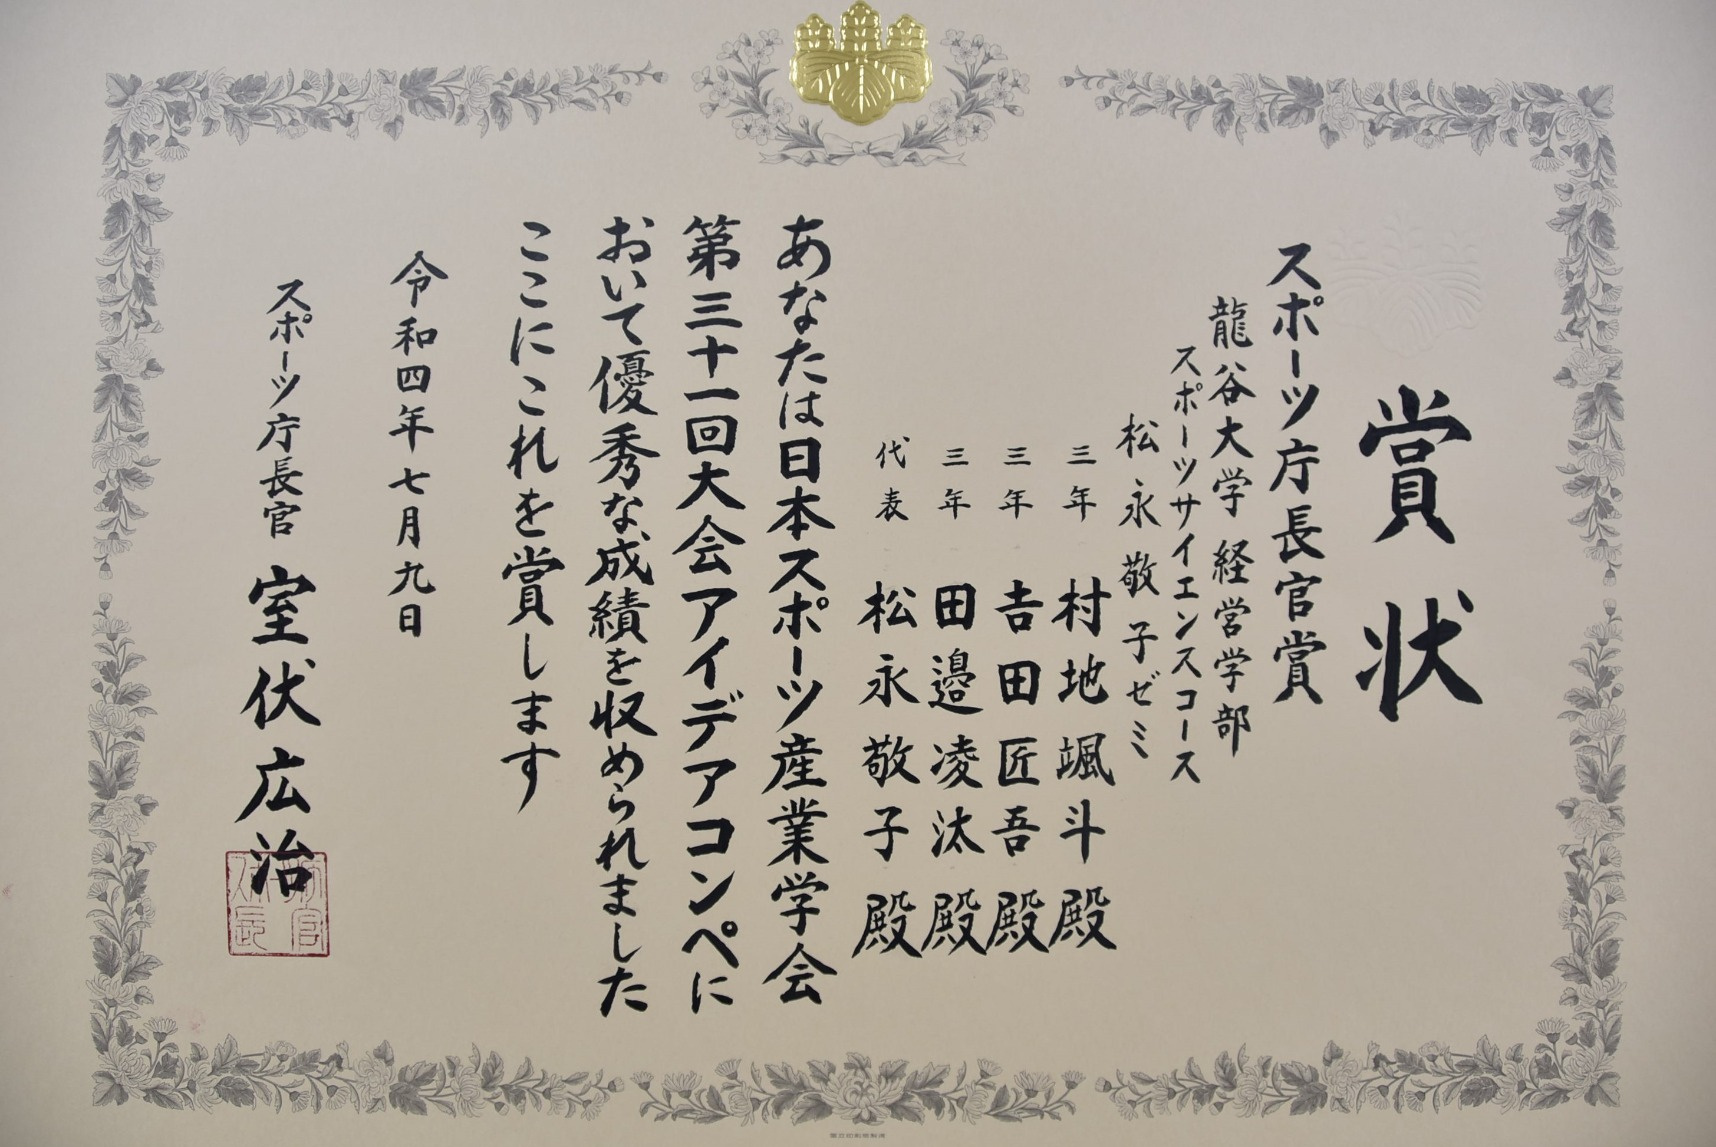 賞状
スポーツ庁長官賞
龍谷大学 経営学部
スポーツサイエンスコース
松永敬子ゼミ
三年 村地颯斗殿
三年 𠮷田匠吾殿
三年 田邉凌汰殿
代表 松永敬子殿
あなたは日本スポーツ産業学会
第三十一回大会アイデアコンペに
おいて優秀な成績を収められました
ここにこれを賞します
令和四年七月九日
スポーツ庁長官 室伏広治